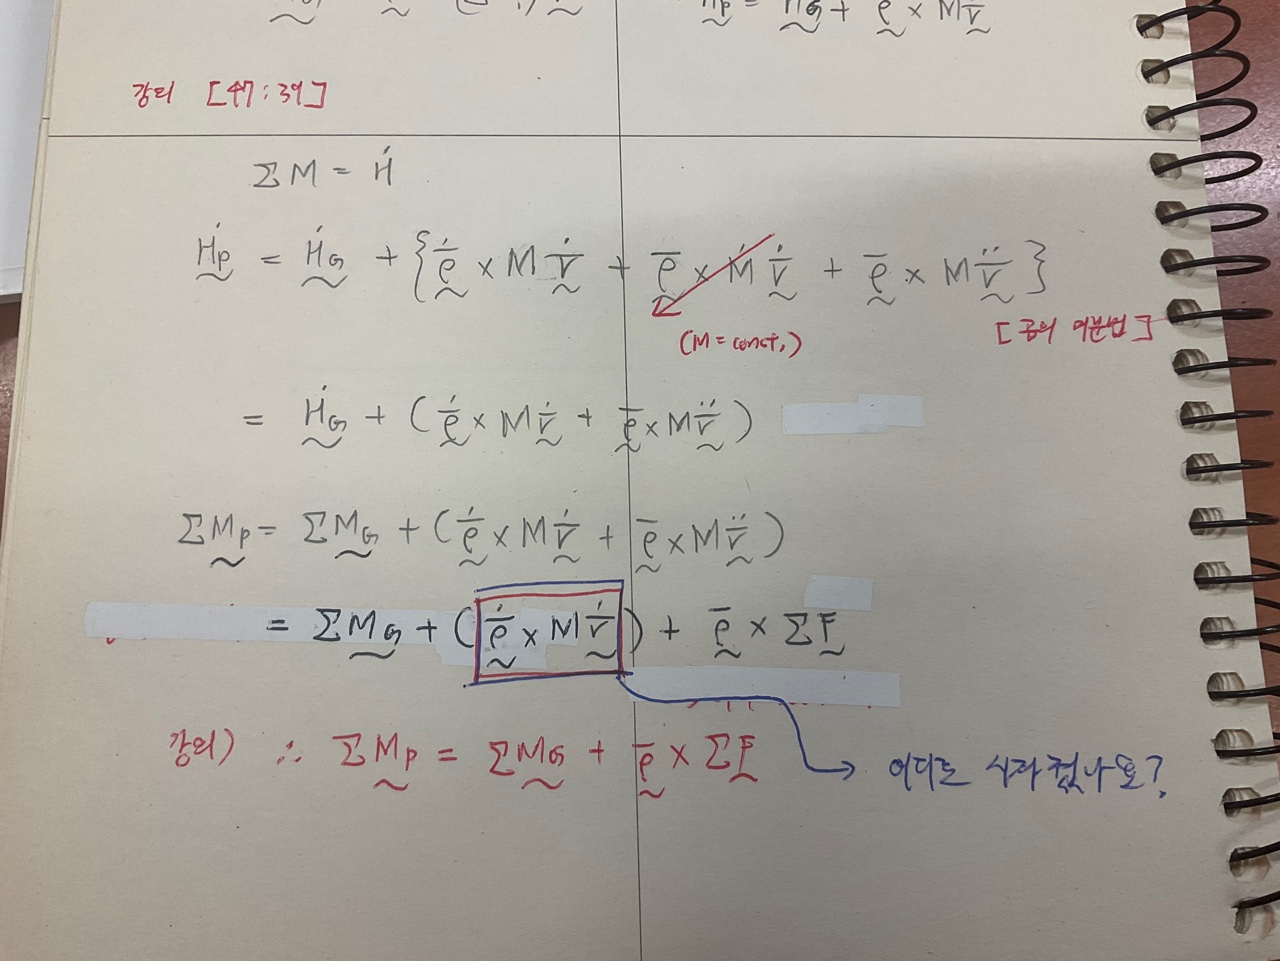 H̲p = H̲G + ρ̲̅ × M r̲̅
강의 [47:39]
ΣM = Ḣ
Ḣp = ḢG + { ρ̅̇ × M r̅̇ + ρ̅ × Ṁ r̅̇ + ρ̅ × M r̅̈ }
(M = const,) [곱의 미분법]
= ḢG + ( ρ̅̇ × M r̅̇ + ρ̅ × M r̅̈ )
ΣMp = ΣMG + ( ρ̅̇ × M r̅̇ + ρ̅ × M r̅̈ )
= ΣMG + ( ρ̅̇ × M r̅̇ ) + ρ̅ × ΣF
강의) ∴ ΣMp = ΣMG + ρ̅ × ΣF
어디로 사라졌나요?